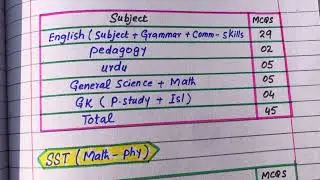 Subject MCQS
English (Subject + Grammar + Comm-Skills 29
pedagogy 02
urdu 05
General Science + Math 05
GK (P-study + Isl) 04
Total 45
SST (Math-phy)
MCQS